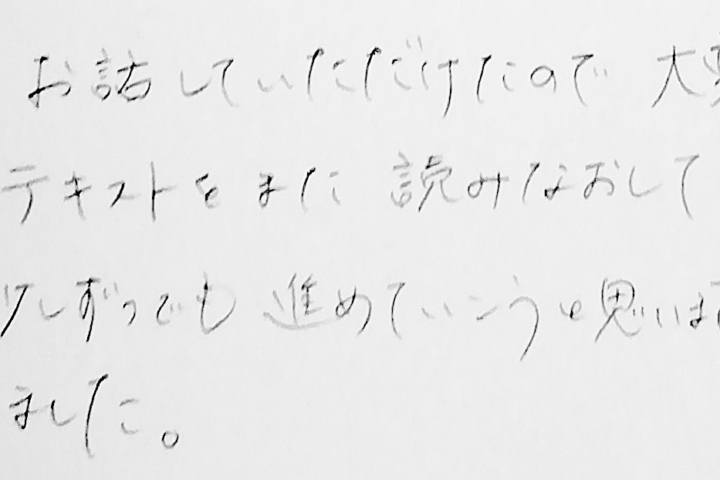 お話していただけたので 大変
テキストをまた 読みなおして
少しずつでも 進めていこうと思いま
ました。